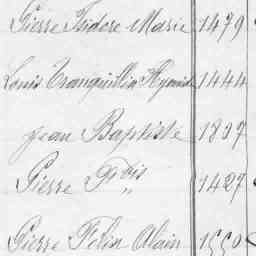 Pierre Isidore Marie 1479
Louis Tranquillin Hyacinthe 1444
Jean Baptiste 1897
Pierre Frois 1427
Pierre Felix Alain 1550